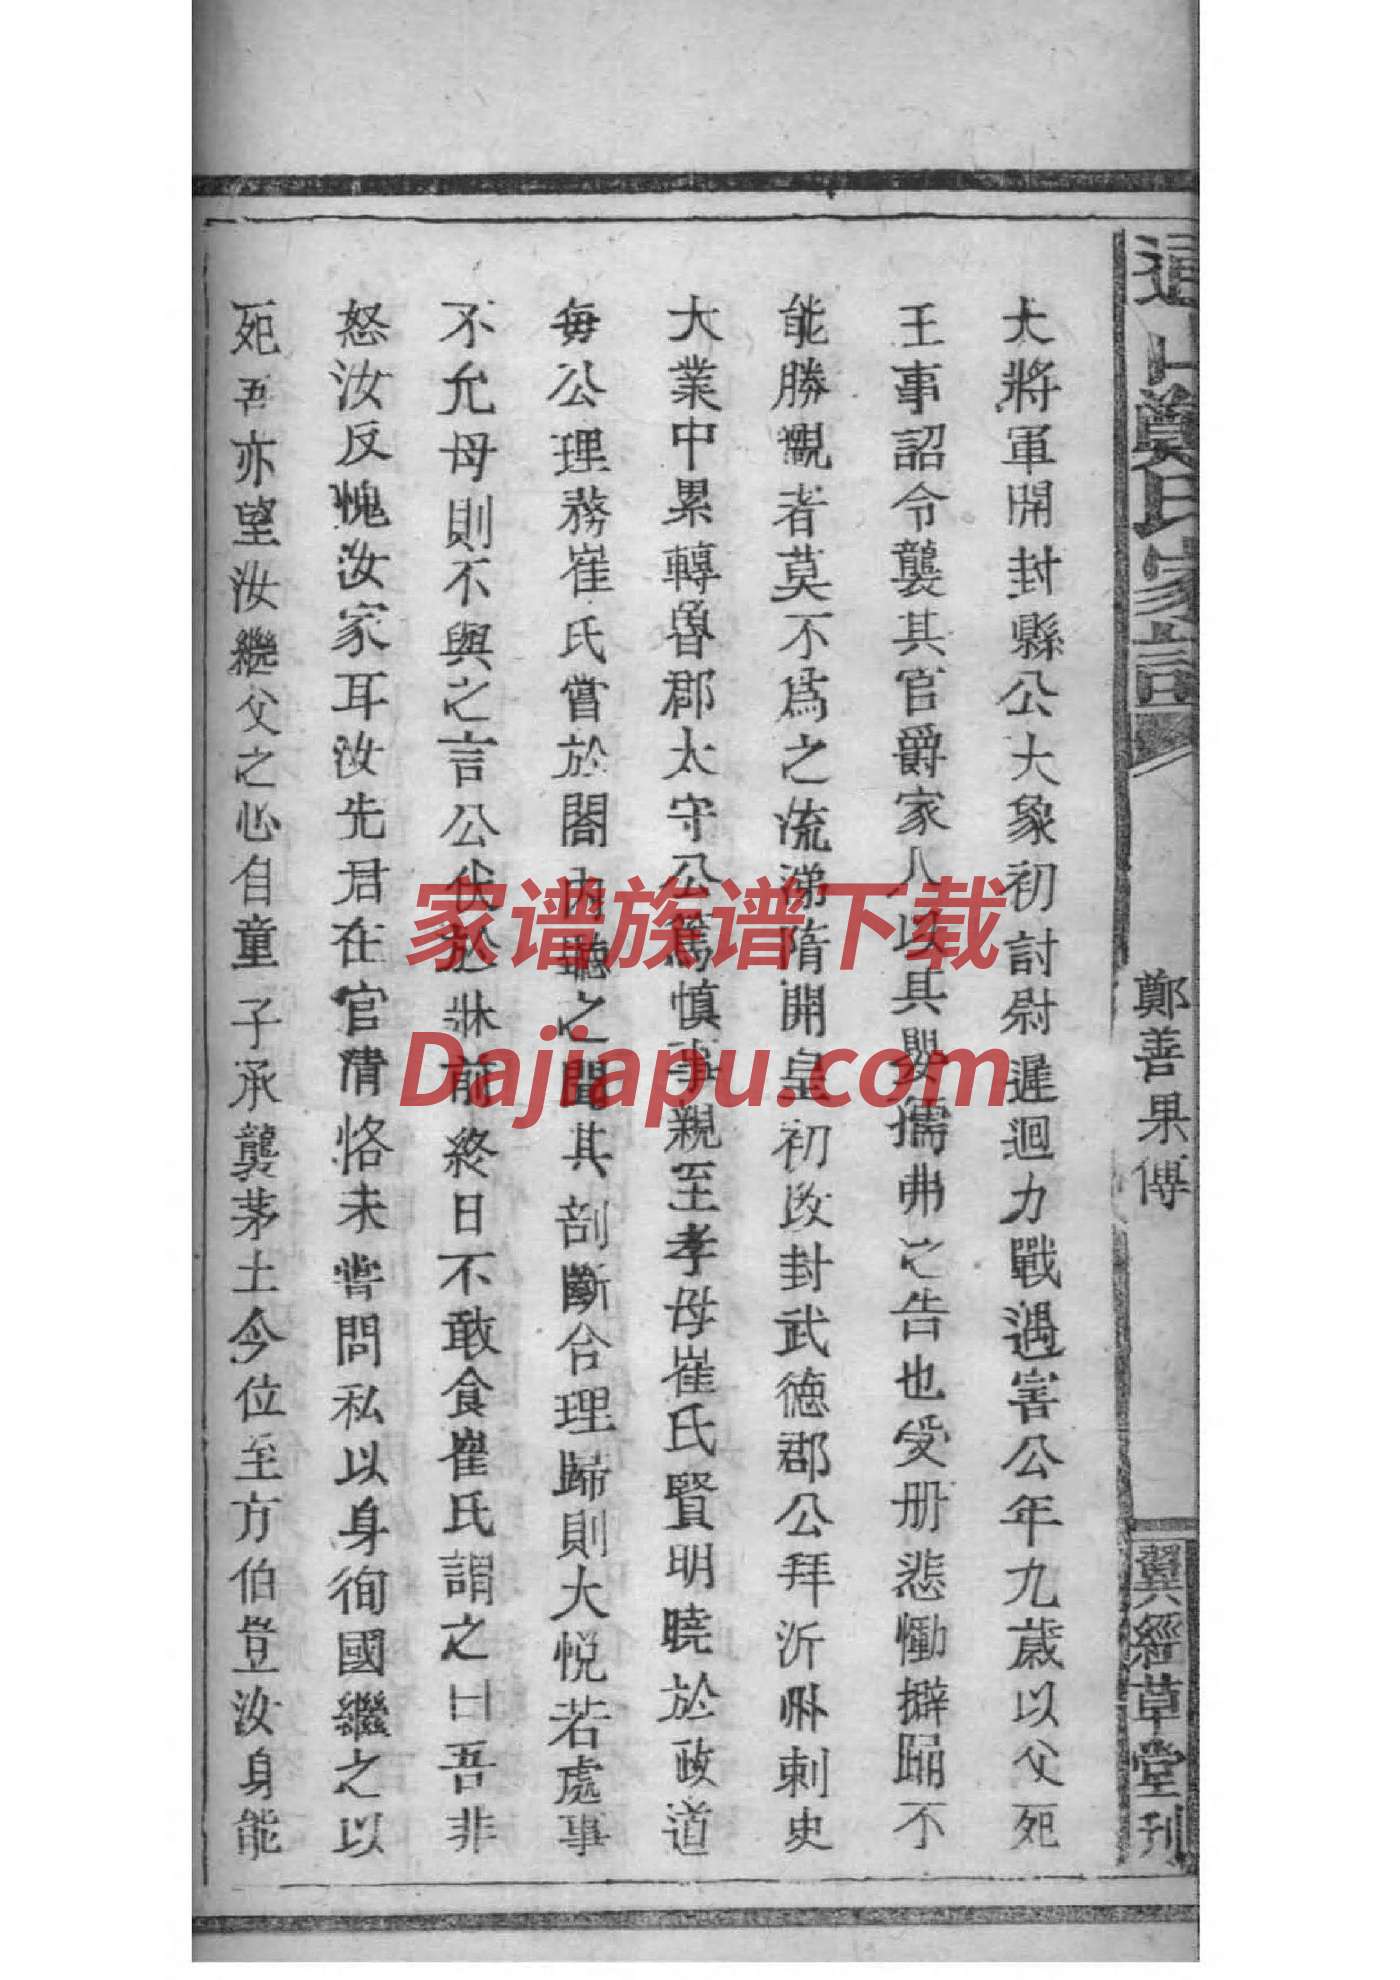 通山鄭氏家譜
鄭善果傳
翼經草堂刊
大將軍開封縣公大象初討尉遲迴力戰遇害公年九歲以父死
王事詔令襲其官爵家人以其嬰孺弗之告也受册悲慟擗踊不
能勝觀者莫不爲之流涕隋開皇初改封武德郡公拜沂州刺史
大業中累轉魯郡太守公篤慎事親至孝母崔氏賢明曉於政道
每公理務崔氏嘗於閤內聽之聞其剖斷合理歸則大悅若處事
不允母則不與之言公伏於牀前終日不敢食崔氏謂之曰吾非
怒汝反愧汝家耳汝先君在官清恪未嘗問私以身徇國繼之以
死吾亦望汝繼父之心自童子承襲茅土今位至方伯豈汝身能
家谱族谱下载
Dajiapu.com